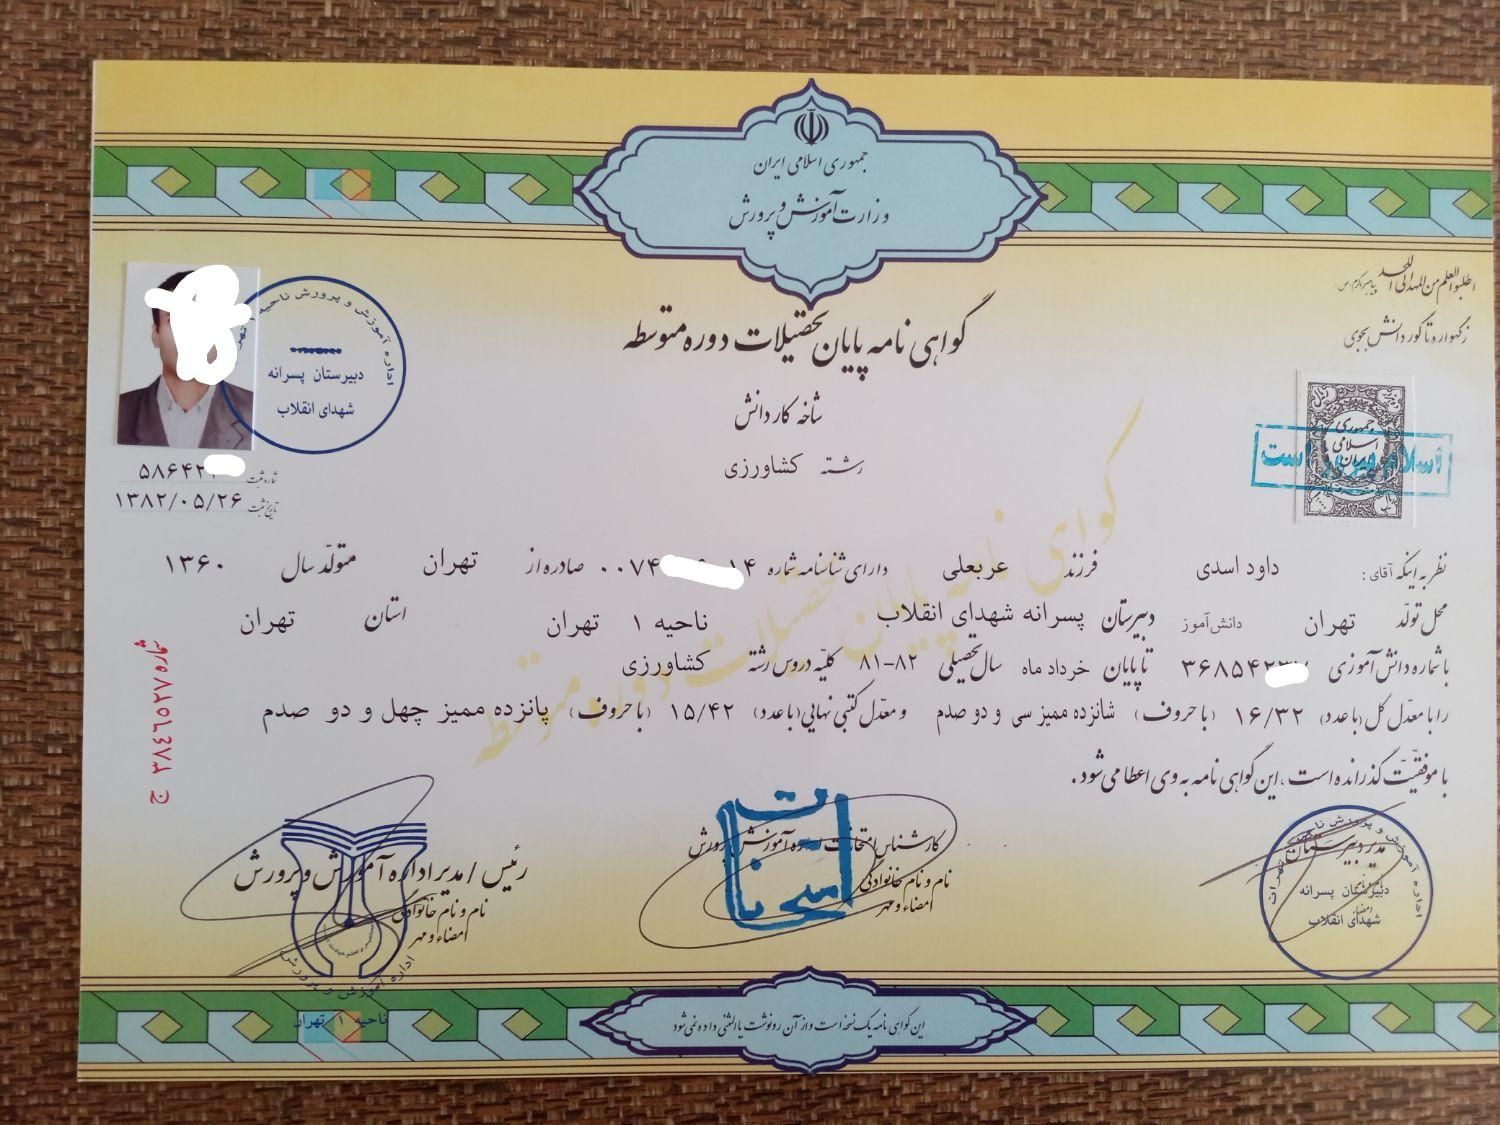 جمهوری اسلامی ایران
وزارت آموزش و پرورش
اطلبوا العلم من المهد الی اللحد پیامبر اکرم (ص)
ز گهواره تا گور دانش بجوی
گواهی نامه پایان تحصیلات دوره متوسطه
شاخه کاردانش
رشته کشاورزی
جمهوری
اسلامی
ایران
ریال
اداره آموزش و پرورش ناحیه تهران
دبیرستان پسرانه
شهدای انقلاب
شماره ثبت ۵۸۶۴۲
تاریخ ثبت ۱۳۸۲/۰۵/۲۶
نظر به اینکه آقای: داود اسدی فرزند عربعلی دارای شناسنامه شماره ۰۰۷۴ ۱۴ صادره از تهران متولد سال ۱۳۶۰
محل تولد تهران دانش‌آموز دبیرستان پسرانه شهدای انقلاب ناحیه ۱ تهران استان تهران
با شماره دانش آموزی ۳۶۸۵۴۲۳ تا پایان خرداد ماه سال تحصیلی ۸۲-۸۱ کلیه دروس رشته کشاورزی
را با معدل کل (با عدد) ۱۶/۳۲ (با حروف) شانزده ممیز سی و دو صدم و معدل کتبی نهایی (با عدد) ۱۵/۴۲ (با حروف) پانزده ممیز چهل و دو صدم
با موفقیت گذرانده است، این گواهی نامه به وی اعطا می شود.
گواهی نامه پایان تحصیلات دوره متوسطه
شماره ۳۸٤٦٥۲۷ ج
مدیر دبیرستان
اداره آموزش و پرورش ناحیه تهران
دبیرستان پسرانه
امضاء
شهدای انقلاب
کارشناس امتحانات اداره آموزش و پرورش
نام و نام خانوادگی
امضاء و مهر
امتحانات
رئیس / مدیر اداره آموزش و پرورش
نام و نام خانوادگی
امضاء و مهر
اداره آموزش و پرورش
ناحیه ۱ تهران
این گواهی نامه یک نسخه است و از آن رونوشت یا المثنی داده نمی شود